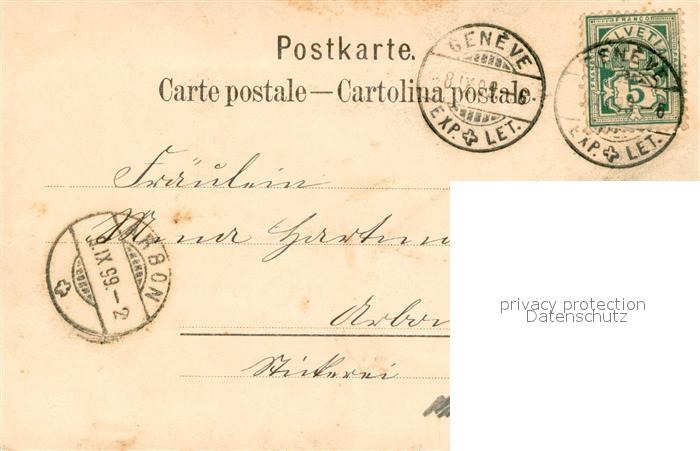 FRANCO
HELVETIA
5
GENÈVE
8.IX.99.-6
EXP. LET.
GENÈVE
EXP. LET.
Postkarte.
Carte postale—Cartolina postale.
Fräulein
Hartm
ARBON
9.IX.99.-2
Arbon
Stickerei
privacy protection
Datenschutz